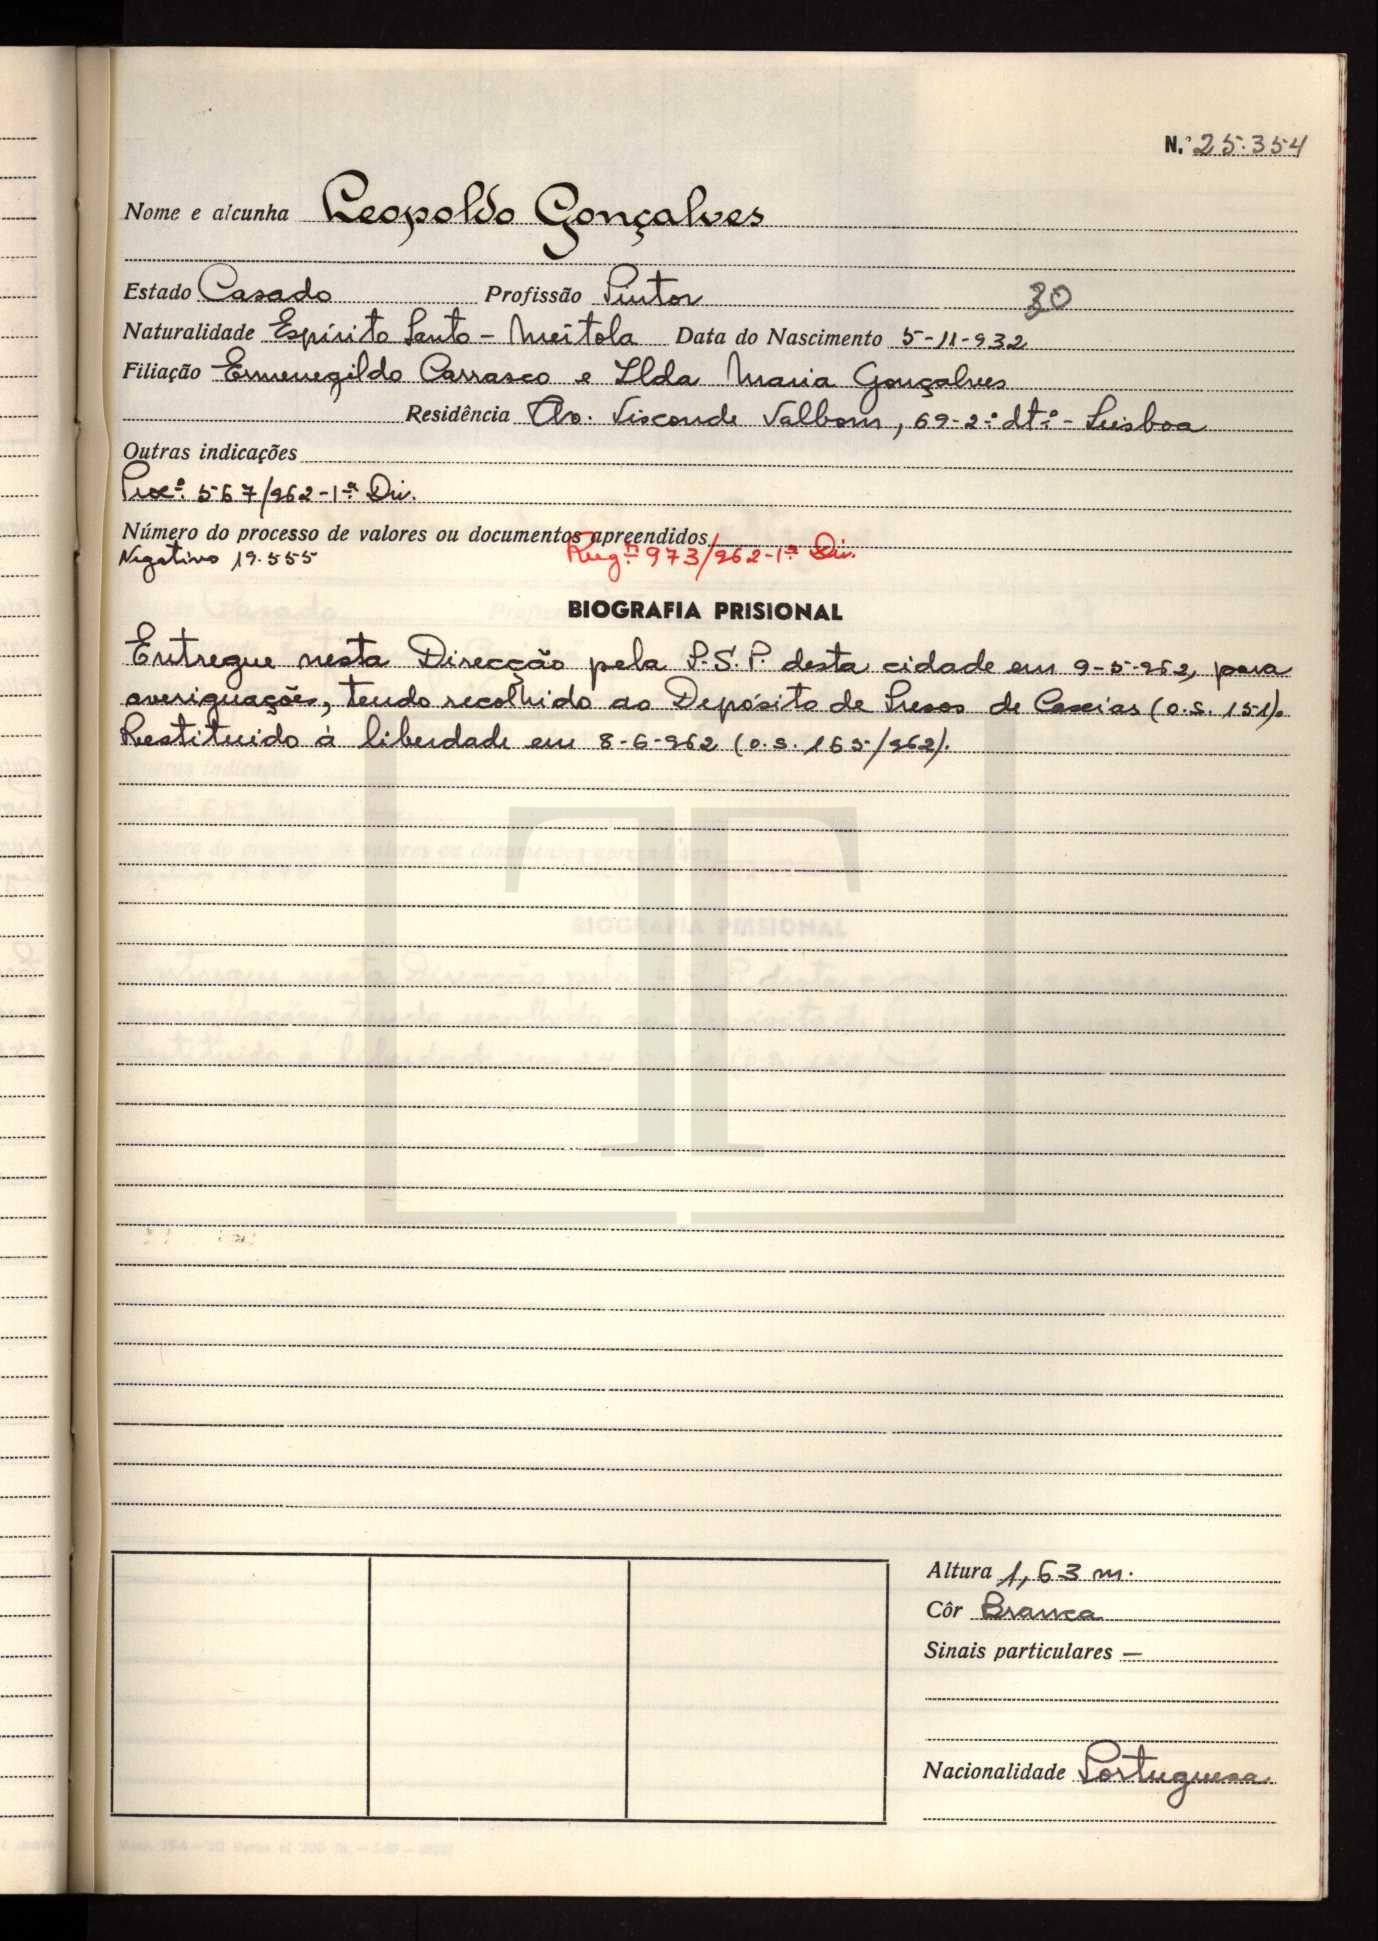 N.º 25.354
Nome e alcunha Leopoldo Gonçalves
Estado Casado Profissão Pintor 30
Naturalidade Espírito Santo - Meítola Data do Nascimento 5-11-932
Filiação Ermenegildo Carrasco e Ilda Maria Gonçalves
Residência Av. Visconde Valbom, 69-2.º dt.º - Lisboa
Outras indicações
Procº. 567/962-1ª Div.
Número do processo de valores ou documentos apreendidos
Negativo 19.555 973/962-1ª Div.
BIOGRAFIA PRISIONAL
Entregue nesta Direcção pela P.S.P. desta cidade em 9-5-962, para
averiguações, tendo recolhido ao Depósito de Presos de Caxias (o.s. 151).
Restituido à liberdade em 8-6-962 (o.s. 165/962).
Altura 1,63 m.
Côr Branca
Sinais particulares —
Nacionalidade Portuguesa